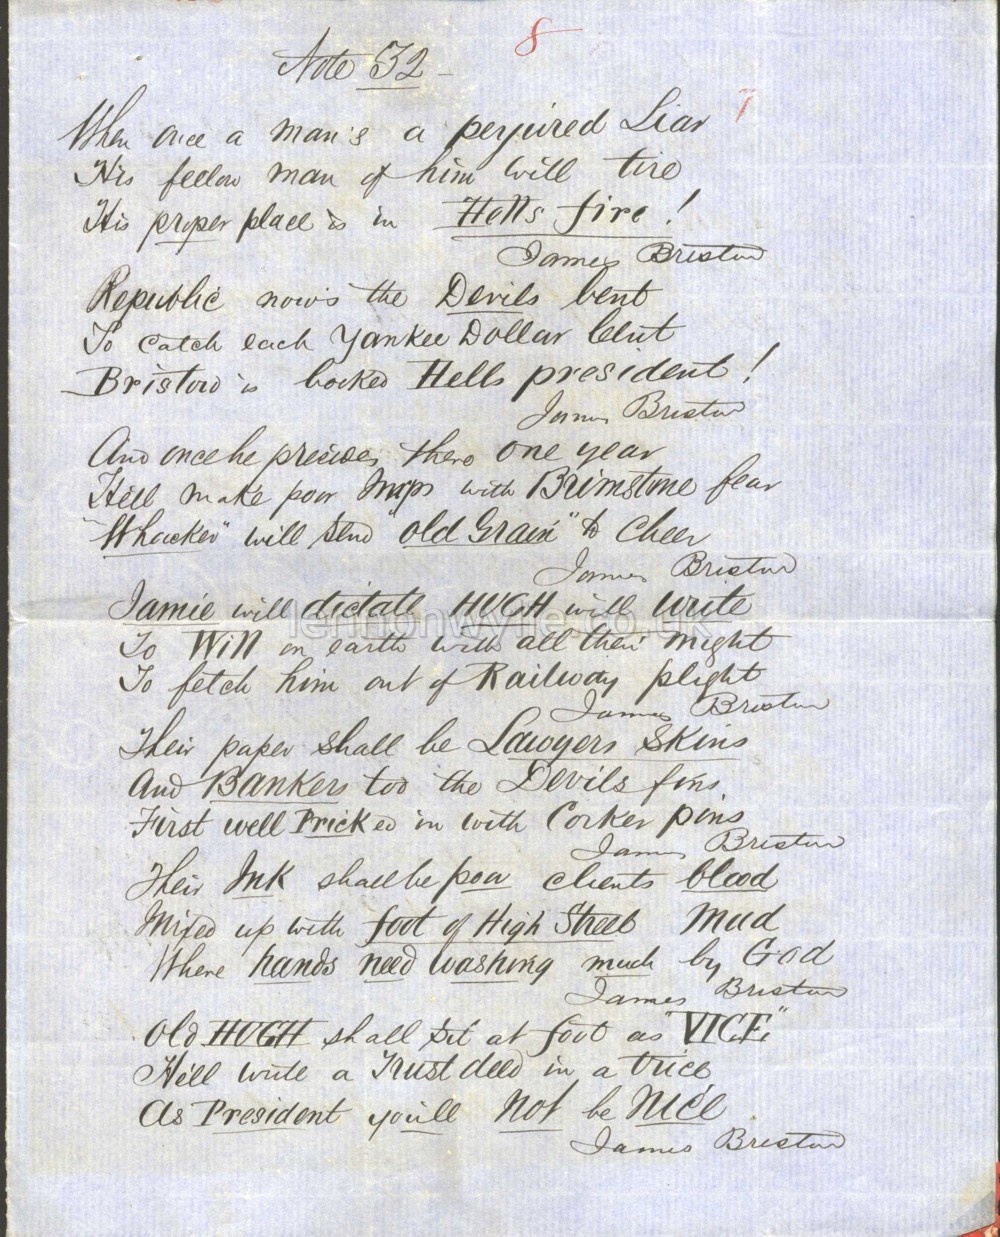 8
Note 32
7
When once a man's a perjured Liar
His fellow man of him will tire
His proper place is in Hells fire!
James Bristow
Republic now's the Devils bent
To catch each Yankee Dollar Clut
Bristow is booked Hells president!
James Bristow
And once he precides there one year
Hell make poor Imps with Brimstone fear
"Whacker" will send "old Grain" to cheer
James Bristow
Jamie will dictate HUGH will write
To Will on earth with all their might
To fetch him out of Railway plight
James Bristow
Their paper shall be Lawyers Skins
And Bankers too the Devils fins
First well Pricked in with Corker pins
James Bristow
Their Ink shall be poor clients blood
Mixed up with foot of High Street Mud
Where hands need washing much by God
James Bristow
Old HUGH shall sit at foot as "VICE"
Hell write a Trust deed in a trice
As President you'll Not be Nice
James Bristow
lennonwylie.co.uk